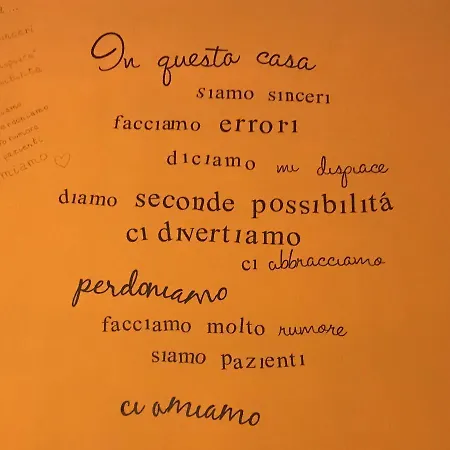 In questa casa
siamo sinceri
facciamo errori
diciamo mi dispiace
diamo seconde possibilitá
ci divertiamo
ci abbracciamo
perdoniamo
facciamo molto rumore
siamo pazienti
ci amiamo